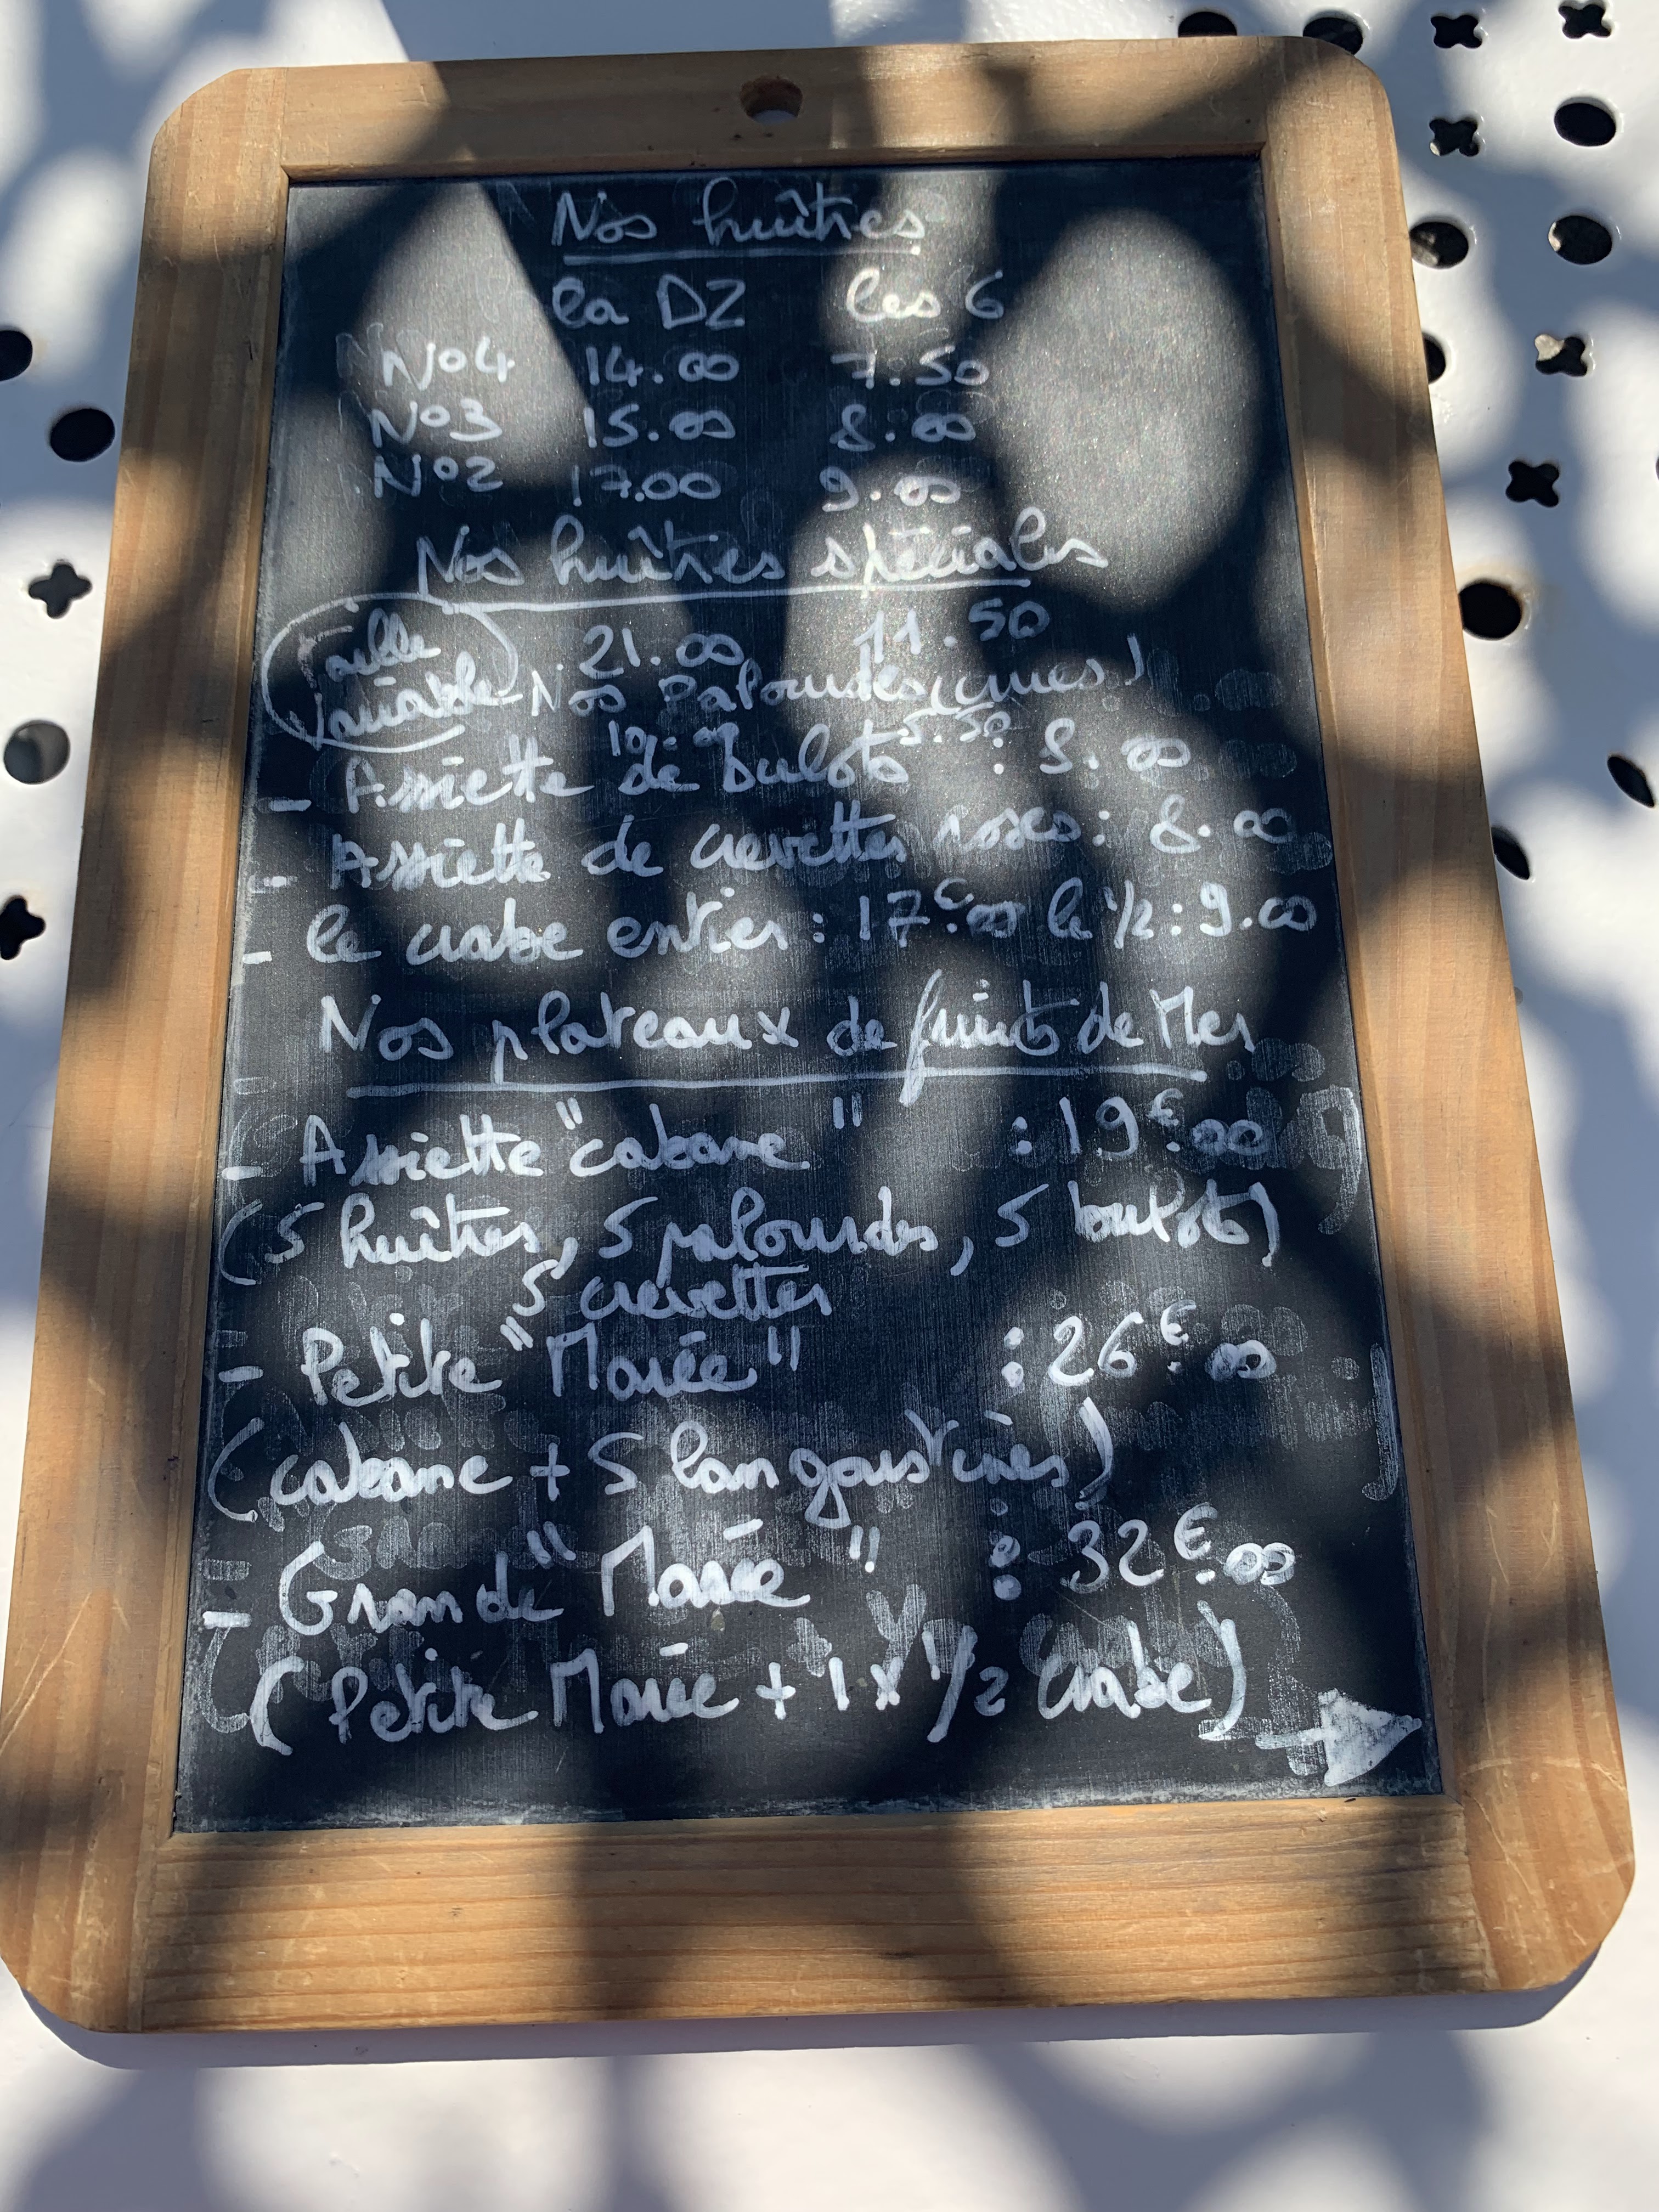 Nos huîtres
la DZ les 6
No4 14.00 7.50
No3 15.00 8.00
No2 17.00 9.00
Nos huîtres spéciales
Taille variable 21.00 11.50
Nos Palourdes (crues)
10.00 5.50
- Assiette de bulots : 8.00
- Assiette de crevettes roses : 8.00
- le crabe entier : 17€.00 le 1/2 : 9.00
Nos plateaux de fruits de Mer
- Assiette "cabane" : 19€.00
(5 huîtres, 5 palourdes, 5 bulots)
5 crevettes
- Petite "Marée" : 26€.00
(cabane + 5 langoustines)
- Grande "Marée" : 32€.00
(Petite Marée + 1 x 1/2 crabe)